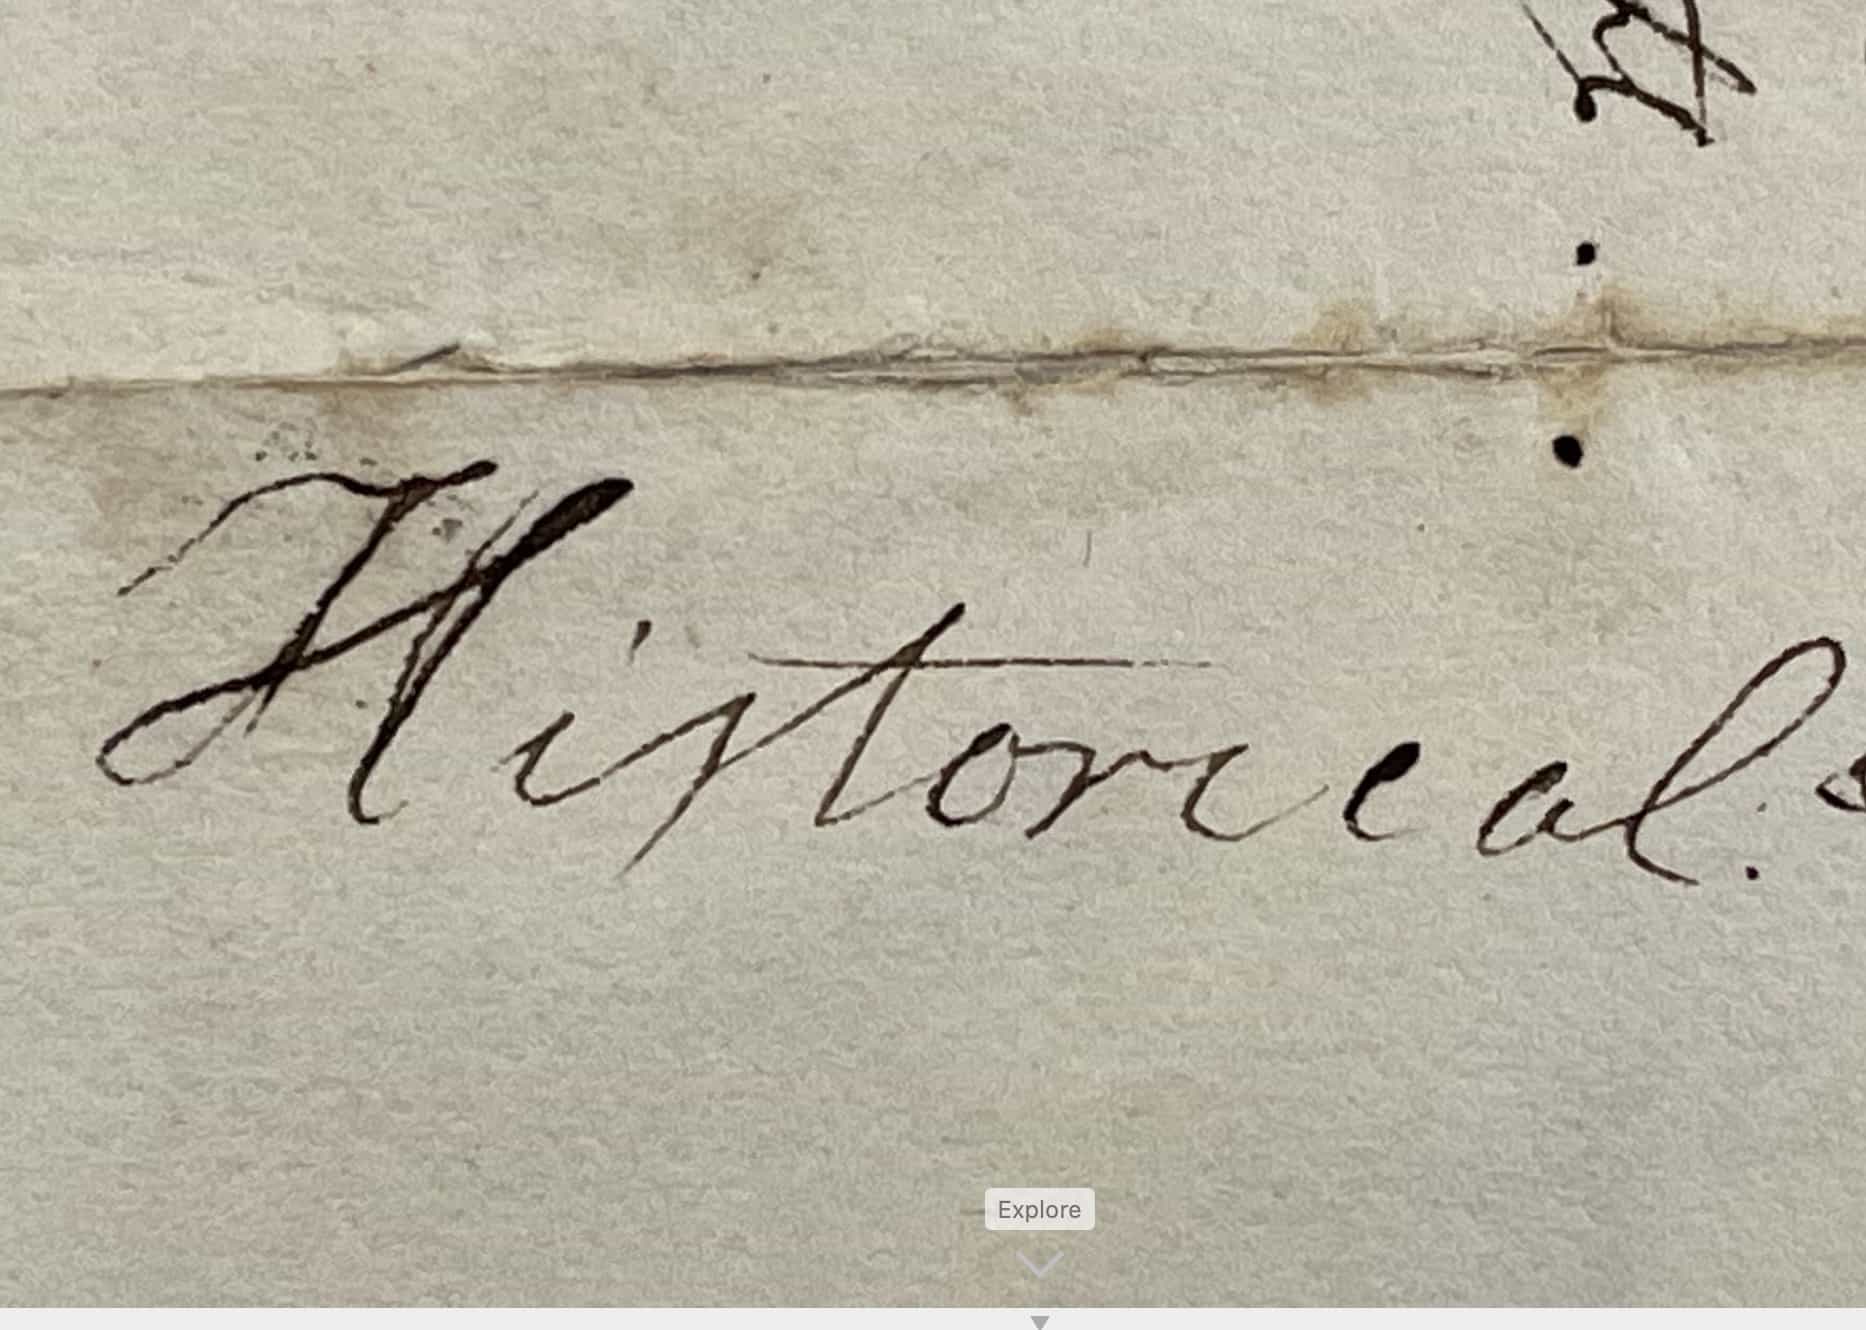 Historical.
Explore